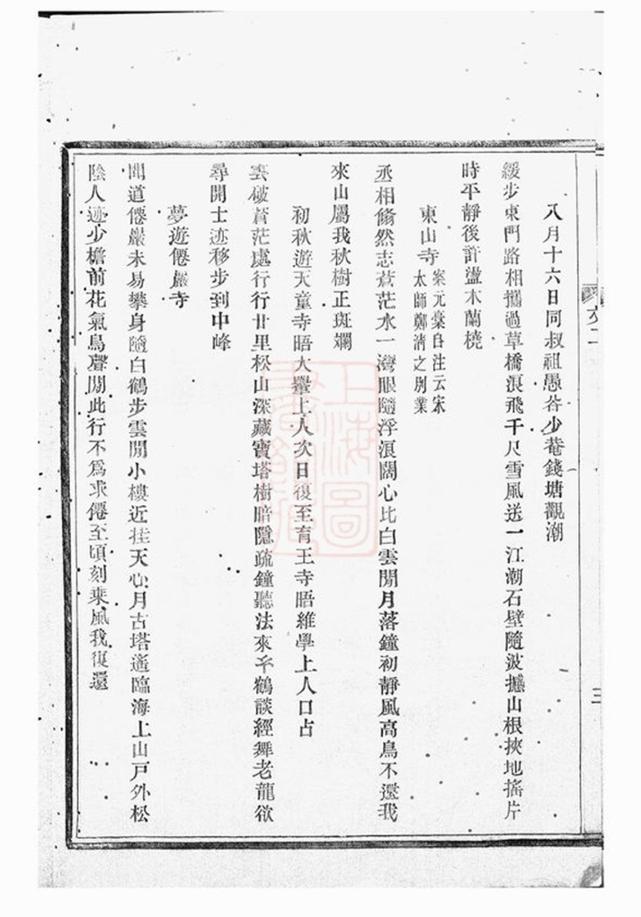 八月十六日同叔祖愚谷少菴錢塘觀潮
緩步東門路相攜過草橋浪飛千尺雪風送一江潮石壁隨波撼山根挾地搖片
時平靜後許盪木蘭橈
東山寺
案元彙自注云宋
太師鄭清之別業
丞相翛然志蒼茫水一灣眼隨浮浪闊心比白雲閒月落鐘初靜風高鳥不還我
來山屬我秋樹正斑斕
初秋遊天童寺晤大壑上人次日復至育王寺晤維學上人口占
雲破蒼茫處行行廿里松山深藏寶塔樹暗隱疏鐘聽法來千鶴談經舞老龍欲
尋開士迹移步到中峰
夢遊僊巖寺
聞道僊巖未易攀身隨白鶴步雲閒小樓近挂天心月古塔遙臨海上山戶外松
陰人迹少檐前花氣鳥聲閒此行不爲求僊至頃刻乘風我復還
三
上海圖